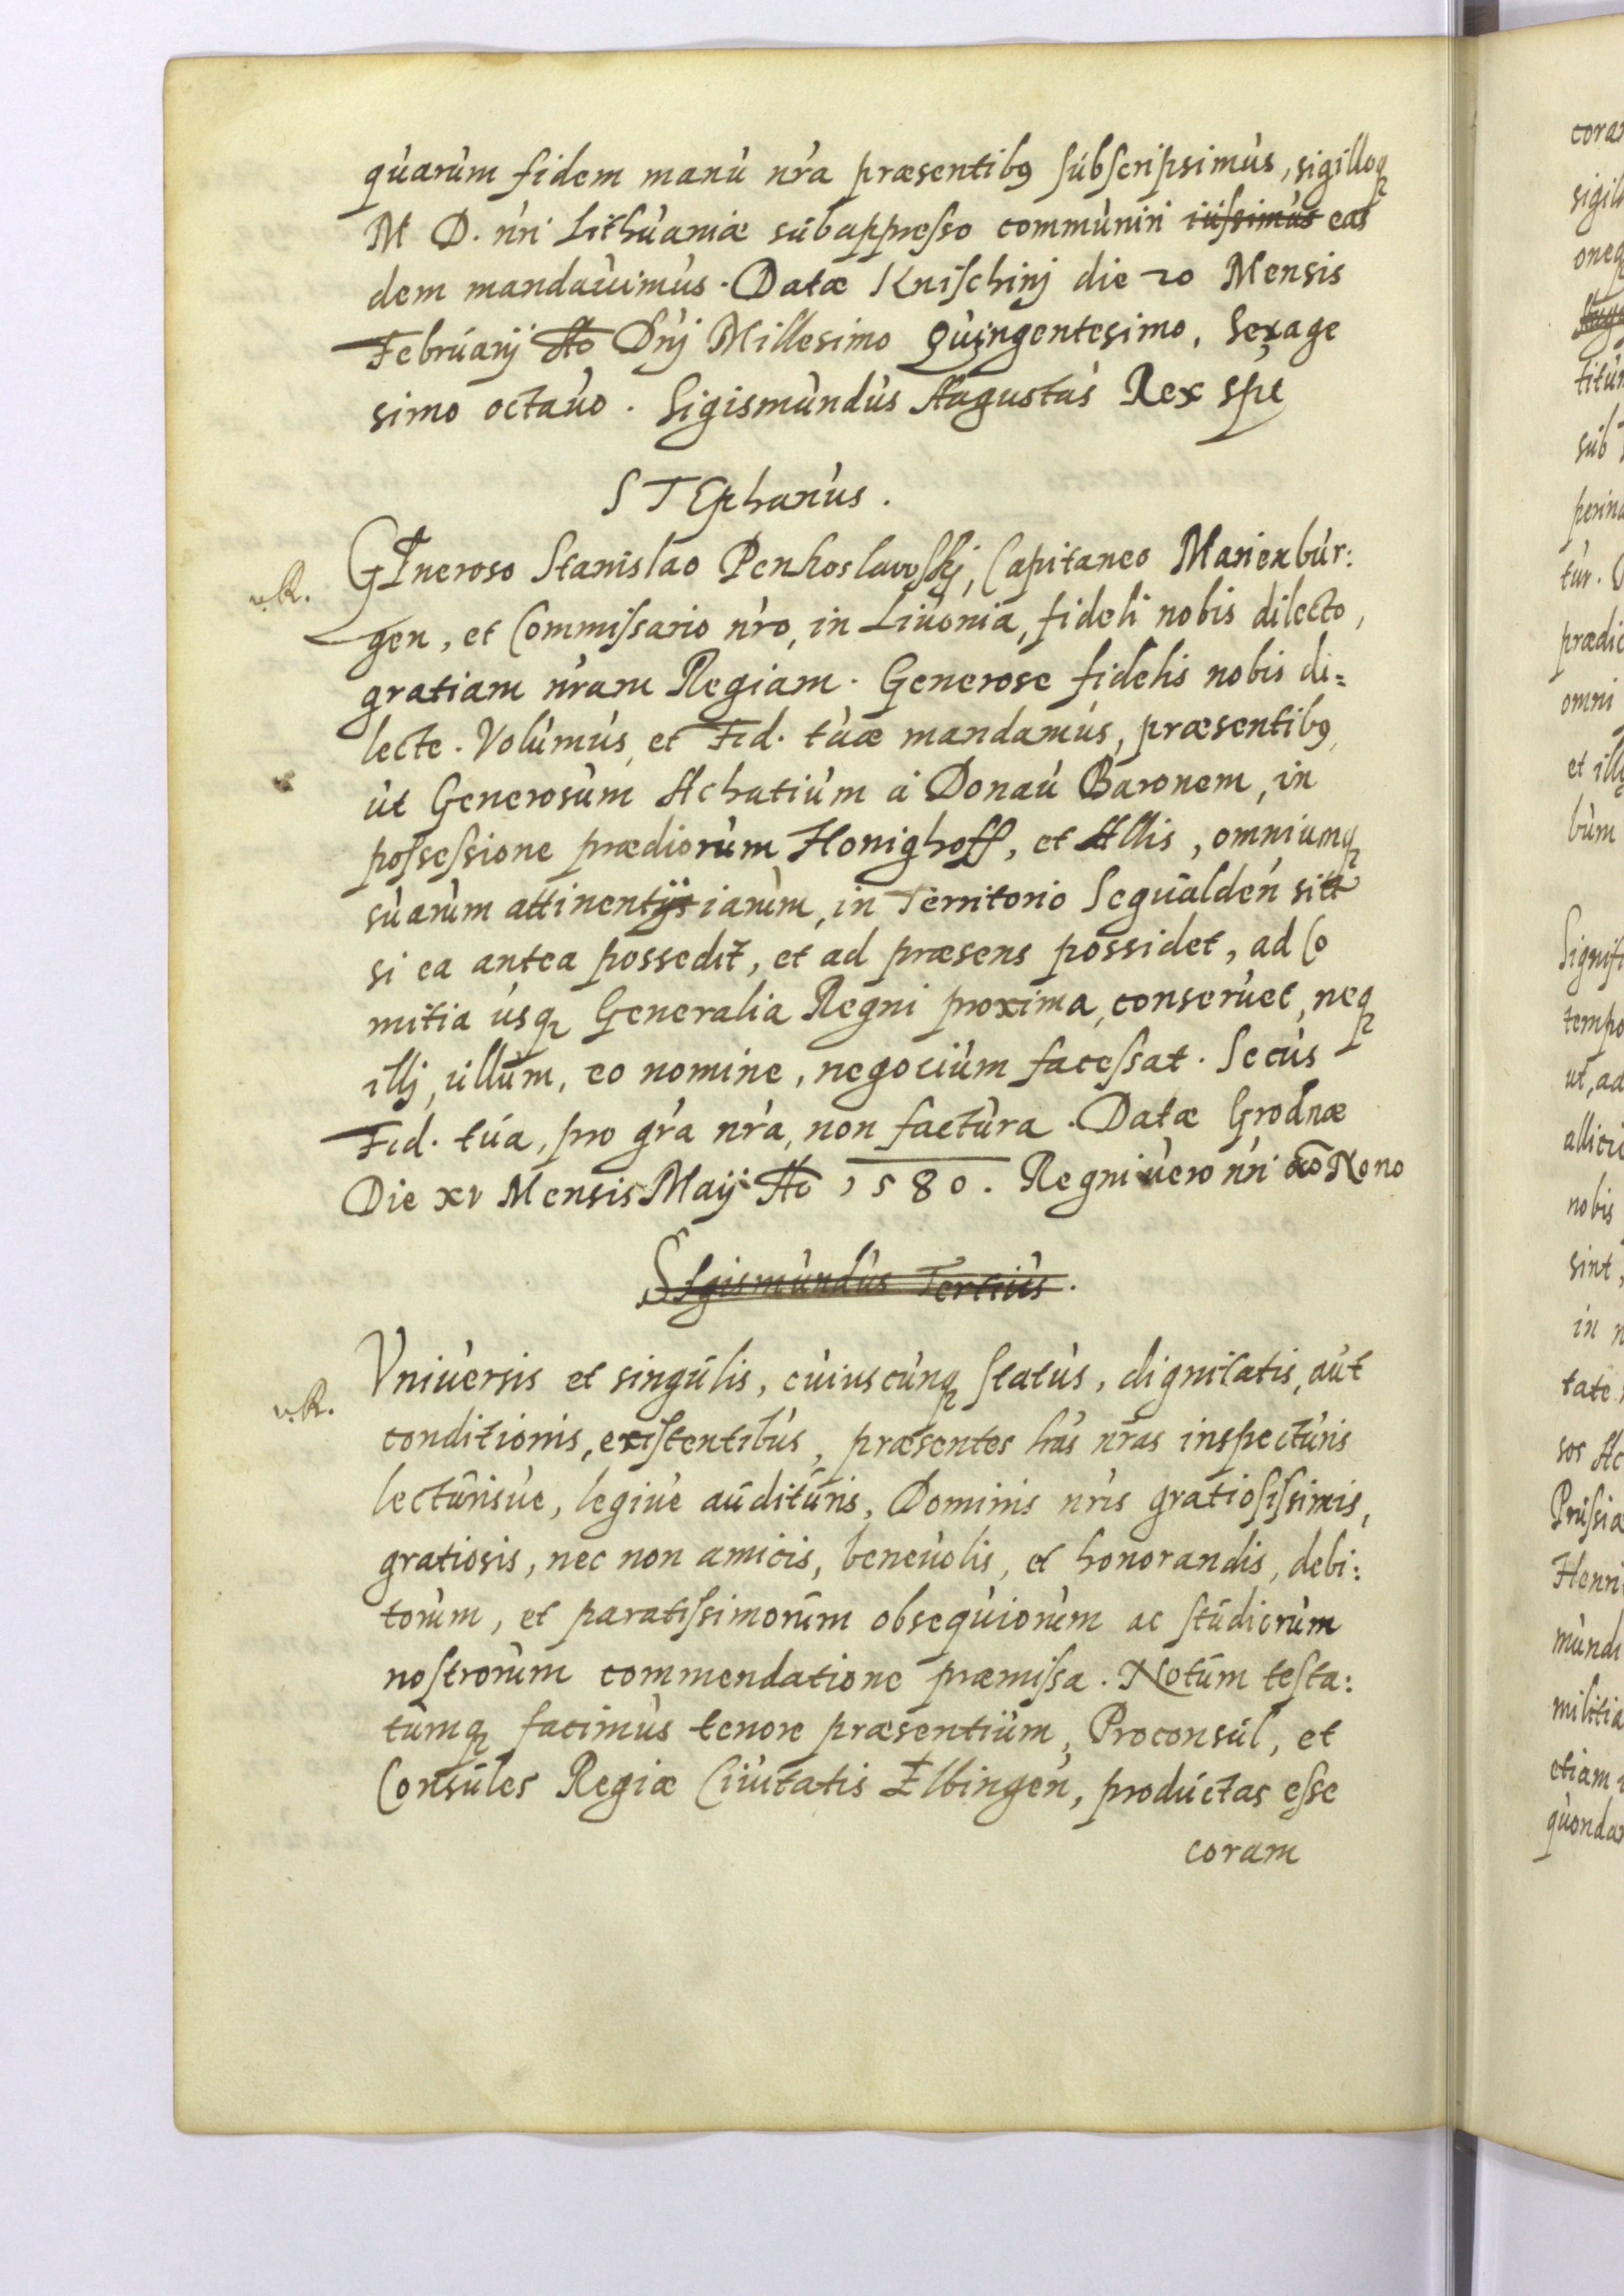 quarum fidem manu nra præsentibꝯ subscripsimus, sigilloqꝫ
M D. nri Lithuaniæ subappresso communiri iussimus eas
dem mandavimus. Datæ Knischinj die 20 Mensis
Februarij Ao Dnj Millesimo Quingentesimo, Sexage
simo octauo. Sigismundus Augustus Rex spt
STEphanus.
v.R. GEneroso Stanislao Penkoslawskj, Capitaneo Marienbur:
gen, et Commissario nro, in Liuonia, fideli nobis dilecto,
gratiam nram Regiam. Generose fidelis nobis di=
lecte. Volumus, et Fid. tuæ mandamus, præsentibꝯ,
ut Generosum Achatium à Donau Baronem, in
possessione prædiorum Honighoff, et Allis, omniumqꝫ
suarum attinentijs iarum, in Territorio Segualden sitt
si ea antea possedit, et ad præsens possidet, ad Co
mitia usqꝫ Generalia Regni proxima, conseruet, neqꝫ
illj, ullum, eo nomine, negocium facessat. Secus
Fid. tua, pro gra nra, non factura. Datæ Grodnæ
Die xv Mensis Maij Ao 1580. Regni uero nri Nono
SIgismundus Tertius.
v.R. Vniuersis et singulis, cuiuscunqꝫ status, dignitatis, aut
conditionis, existentibus, præsentes has nras inspecturis
lecturisue, legiue audituris, Dominis nris gratiosissimis,
gratiosis, nec non amicis, beneuolis, et honorandis, debi:
torum, et paratissimorum obsequiorum ac studiorum
nostrorum commendatione præmissa. Notum testa:
tumqꝫ facimus tenore præsentium, Proconsul, et
Consules Regiæ Ciuitatis Elbingen, productas esse
coram